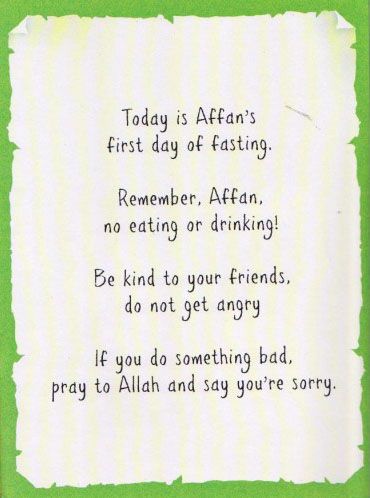 Today is Affan's
first day of fasting.
Remember, Affan,
no eating or drinking!
Be kind to your friends,
do not get angry
If you do something bad,
pray to Allah and say you're sorry.